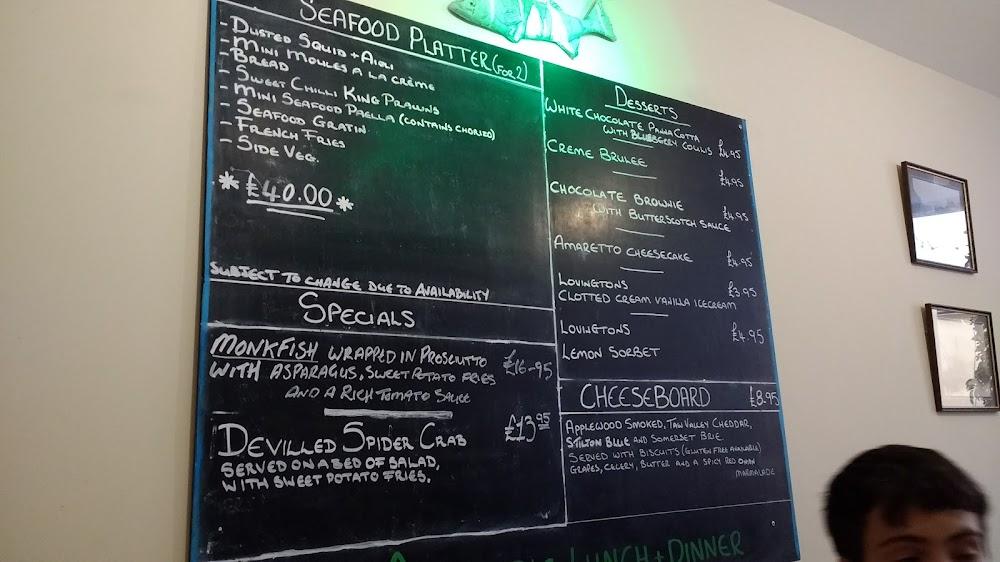 SEAFOOD PLATTER (FOR 2)
- DUSTED SQUID + AIOLI
- MINI MOULES A LA CRÈME
- BREAD
- SWEET CHILLI KING PRAWNS
- MINI SEAFOOD PAELLA (CONTAINS CHORIZO)
- SEAFOOD GRATIN
- FRENCH FRIES
- SIDE VEG.
* £40.00 *
SUBJECT TO CHANGE DUE TO AVAILABILITY
SPECIALS
MONKFISH WRAPPED IN PROSCIUTTO £16-95
WITH ASPARAGUS, SWEET POTATO FRIES
AND A RICH TOMATO SAUCE
DEVILLED SPIDER CRAB £13.95
SERVED ON A BED OF SALAD,
WITH SWEET POTATO FRIES.
DESSERTS
WHITE CHOCOLATE PANNA COTTA
WITH BLUEBERRY COULIS £4.95
CREME BRULEE £4.95
CHOCOLATE BROWNIE
WITH BUTTERSCOTCH SAUCE £4.95
AMARETTO CHEESECAKE £4.95
LOVINGTONS £3.95
CLOTTED CREAM VANILLA ICECREAM
LOVINGTONS £4.95
LEMON SORBET
CHEESEBOARD £8.95
APPLEWOOD SMOKED, TAW VALLEY CHEDDAR,
STILTON BLUE AND SOMERSET BRIE.
SERVED WITH BISCUITS (GLUTEN FREE AVAILABLE)
GRAPES, CELERY, BUTTER AND A SPICY RED ONION
MARMALADE
LUNCH + DINNER